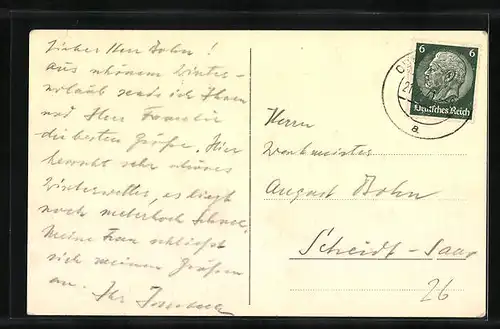 Lieber Herr Bohn!
Aus schönem Winter-
urlaub sende ich Ihnen
und Ihrer Familie
die besten Grüße. Hier
herrscht sehr schönes
Winterwetter, es liegt
noch meterhoch Schnee.
Meine Frau schließt
sich meinen Grüßen
an. Ihr
6 6
Deutsches Reich
a
Herrn
Werkmeister
August Bohn
Scheidt-Saar
26